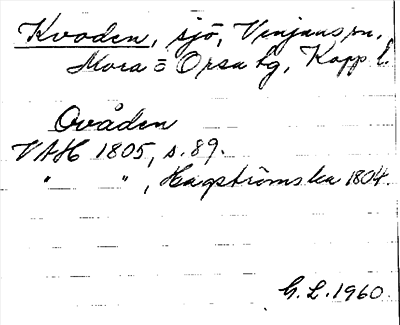 Kvoden, sjö, Venjans sn.
Mora o Orsa tg, Kopp l.
Ovåden
VAH 1805, s. 89.
" ", Hagströmska 1804.
G.L. 1960